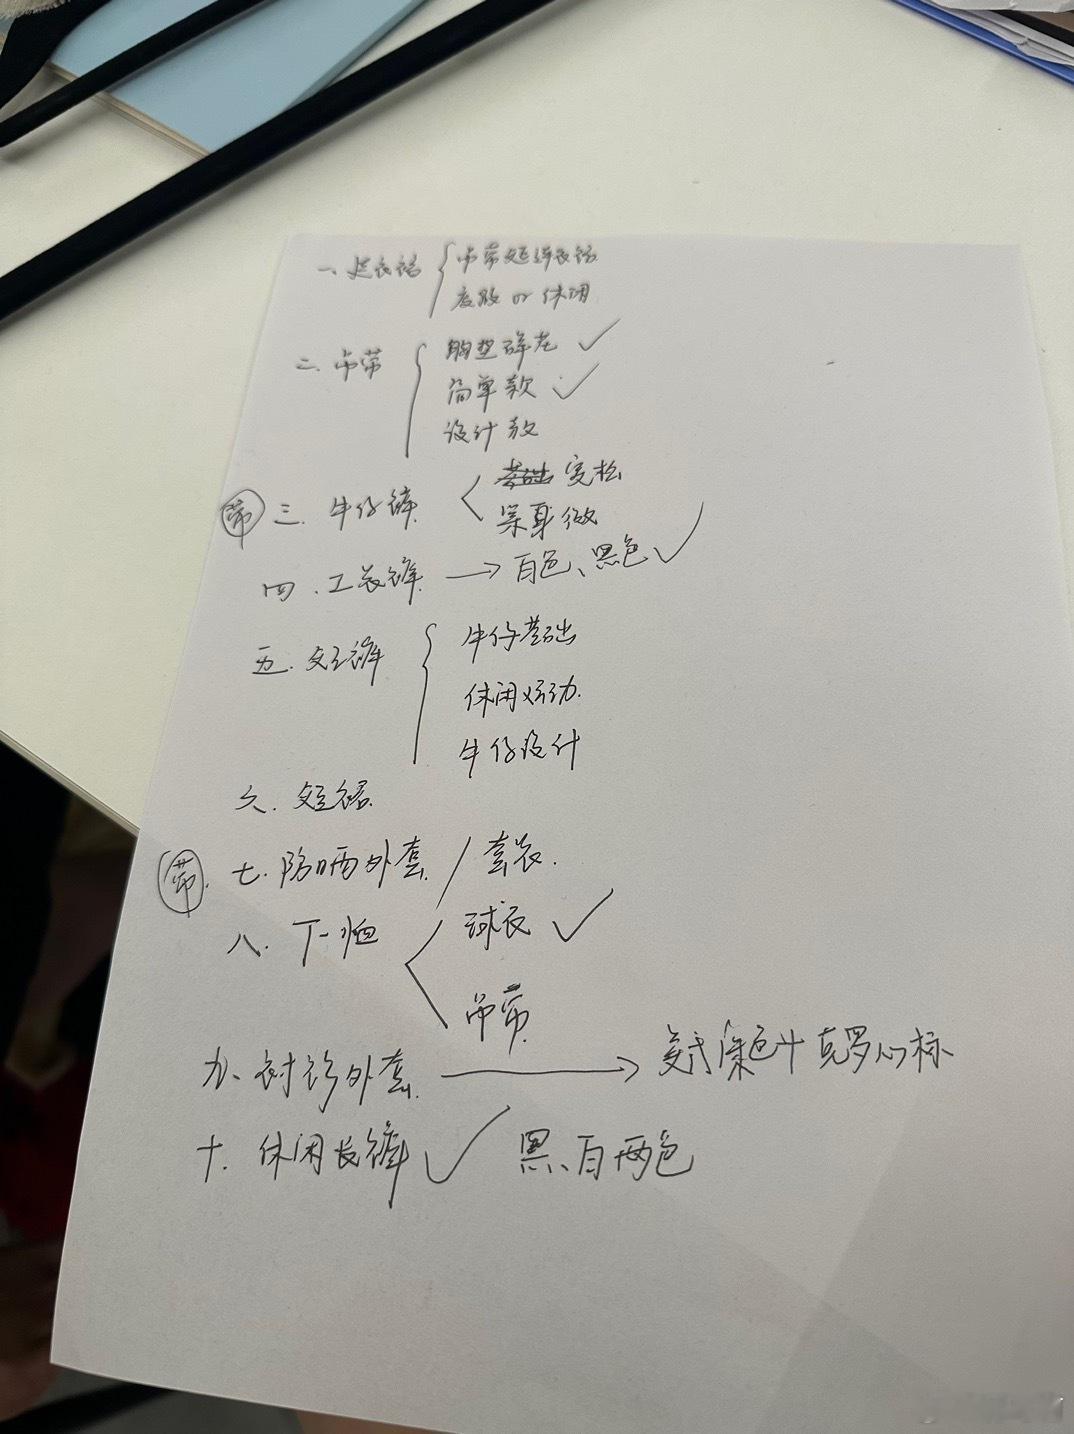 一、连衣裙 { 吊带短连衣裙
度假 or 休闲
二、吊带 { 胸垫碎花 ✓
简单款 ✓
设计款
带 三. 牛仔裤 < 基础 宽松
紧身微
四. 工装裤 → 白色、黑色 ✓
五. 短裤 { 牛仔基础
休闲运动.
牛仔设计
六. 短裙
带. 七. 防晒外套 / 套衣.
八. T-恤 < 球衣 ✓
吊带
九、衬衫外套 → 美式深色+克罗心标
十. 休闲长裤 ✓ 黑、白两色